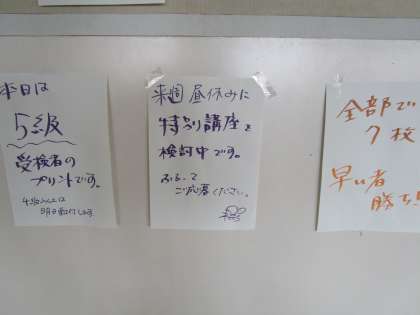 本日は
5級
受検者の
プリントです。
明日配付します
来週 昼休みに
特別講座を
検討中です。
ふるって
ご応募ください。
全部で
7校
早い者
勝ち!!